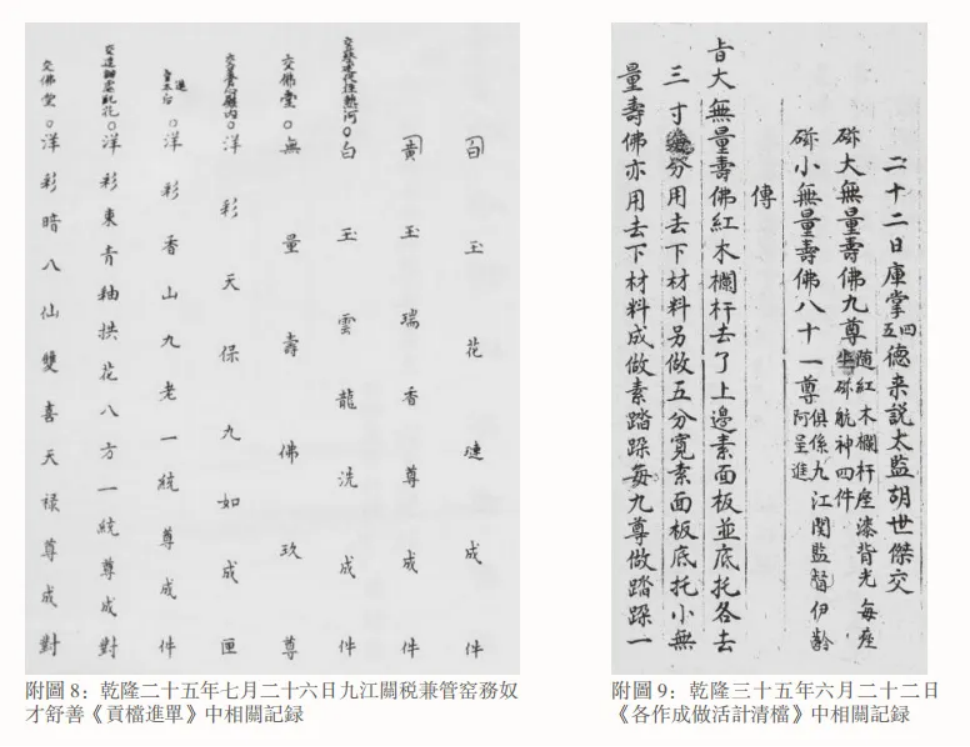 白玉花成件
黃玉瑞香尊成件
熱河○白玉雲龍洗成件
交佛堂○無量壽佛玖尊
交養心殿內○洋彩天保九如成匣
進皇太后○洋彩香山九老一統尊成件
交造辦處配花○洋彩東青釉拱花八方一統尊成對
交佛堂○洋彩暗八仙雙喜天祿尊成對
附圖 8：乾隆二十五年七月二十六日九江關税兼管窑務奴
才舒善《貢檔進單》中相關記録
二十二日庫掌四五德来説太監胡世傑交
磁大無量壽佛九尊隨紅木欄杆座漆背光每座磁航神四件
磁小無量壽佛八十一尊俱係九江関監督伊齡阿呈進
傳
旨大無量壽佛紅木欄杆去了上邊素面板並底托各去
三寸分用去下材料另做五分寬素面板底托小無
量壽佛亦用去下材料成做素踏跺每九尊做踏跺一
附圖 9：乾隆三十五年六月二十二日
《各作成做活計清檔》中相關記録